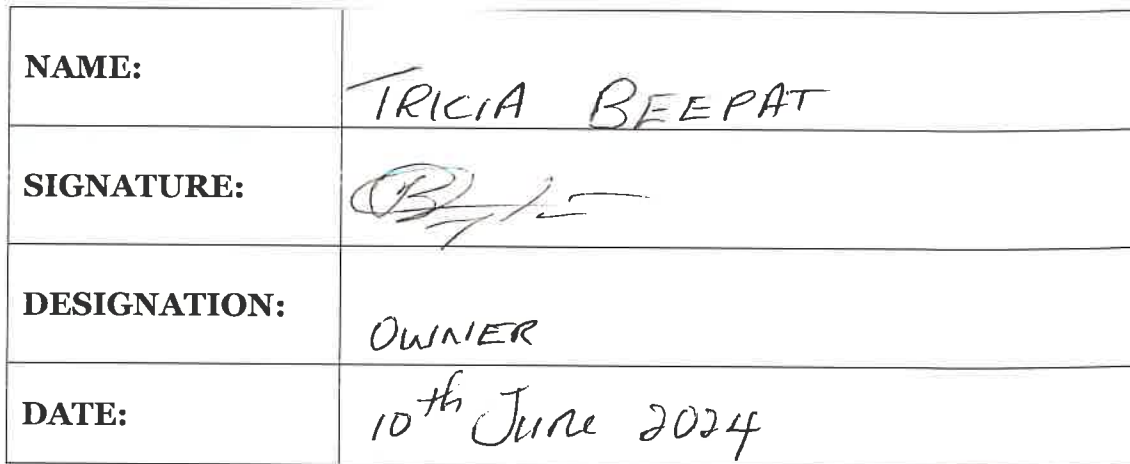 NAME: TRICIA BEEPAT
SIGNATURE:
DESIGNATION: OWNER
DATE: 10th June 2024